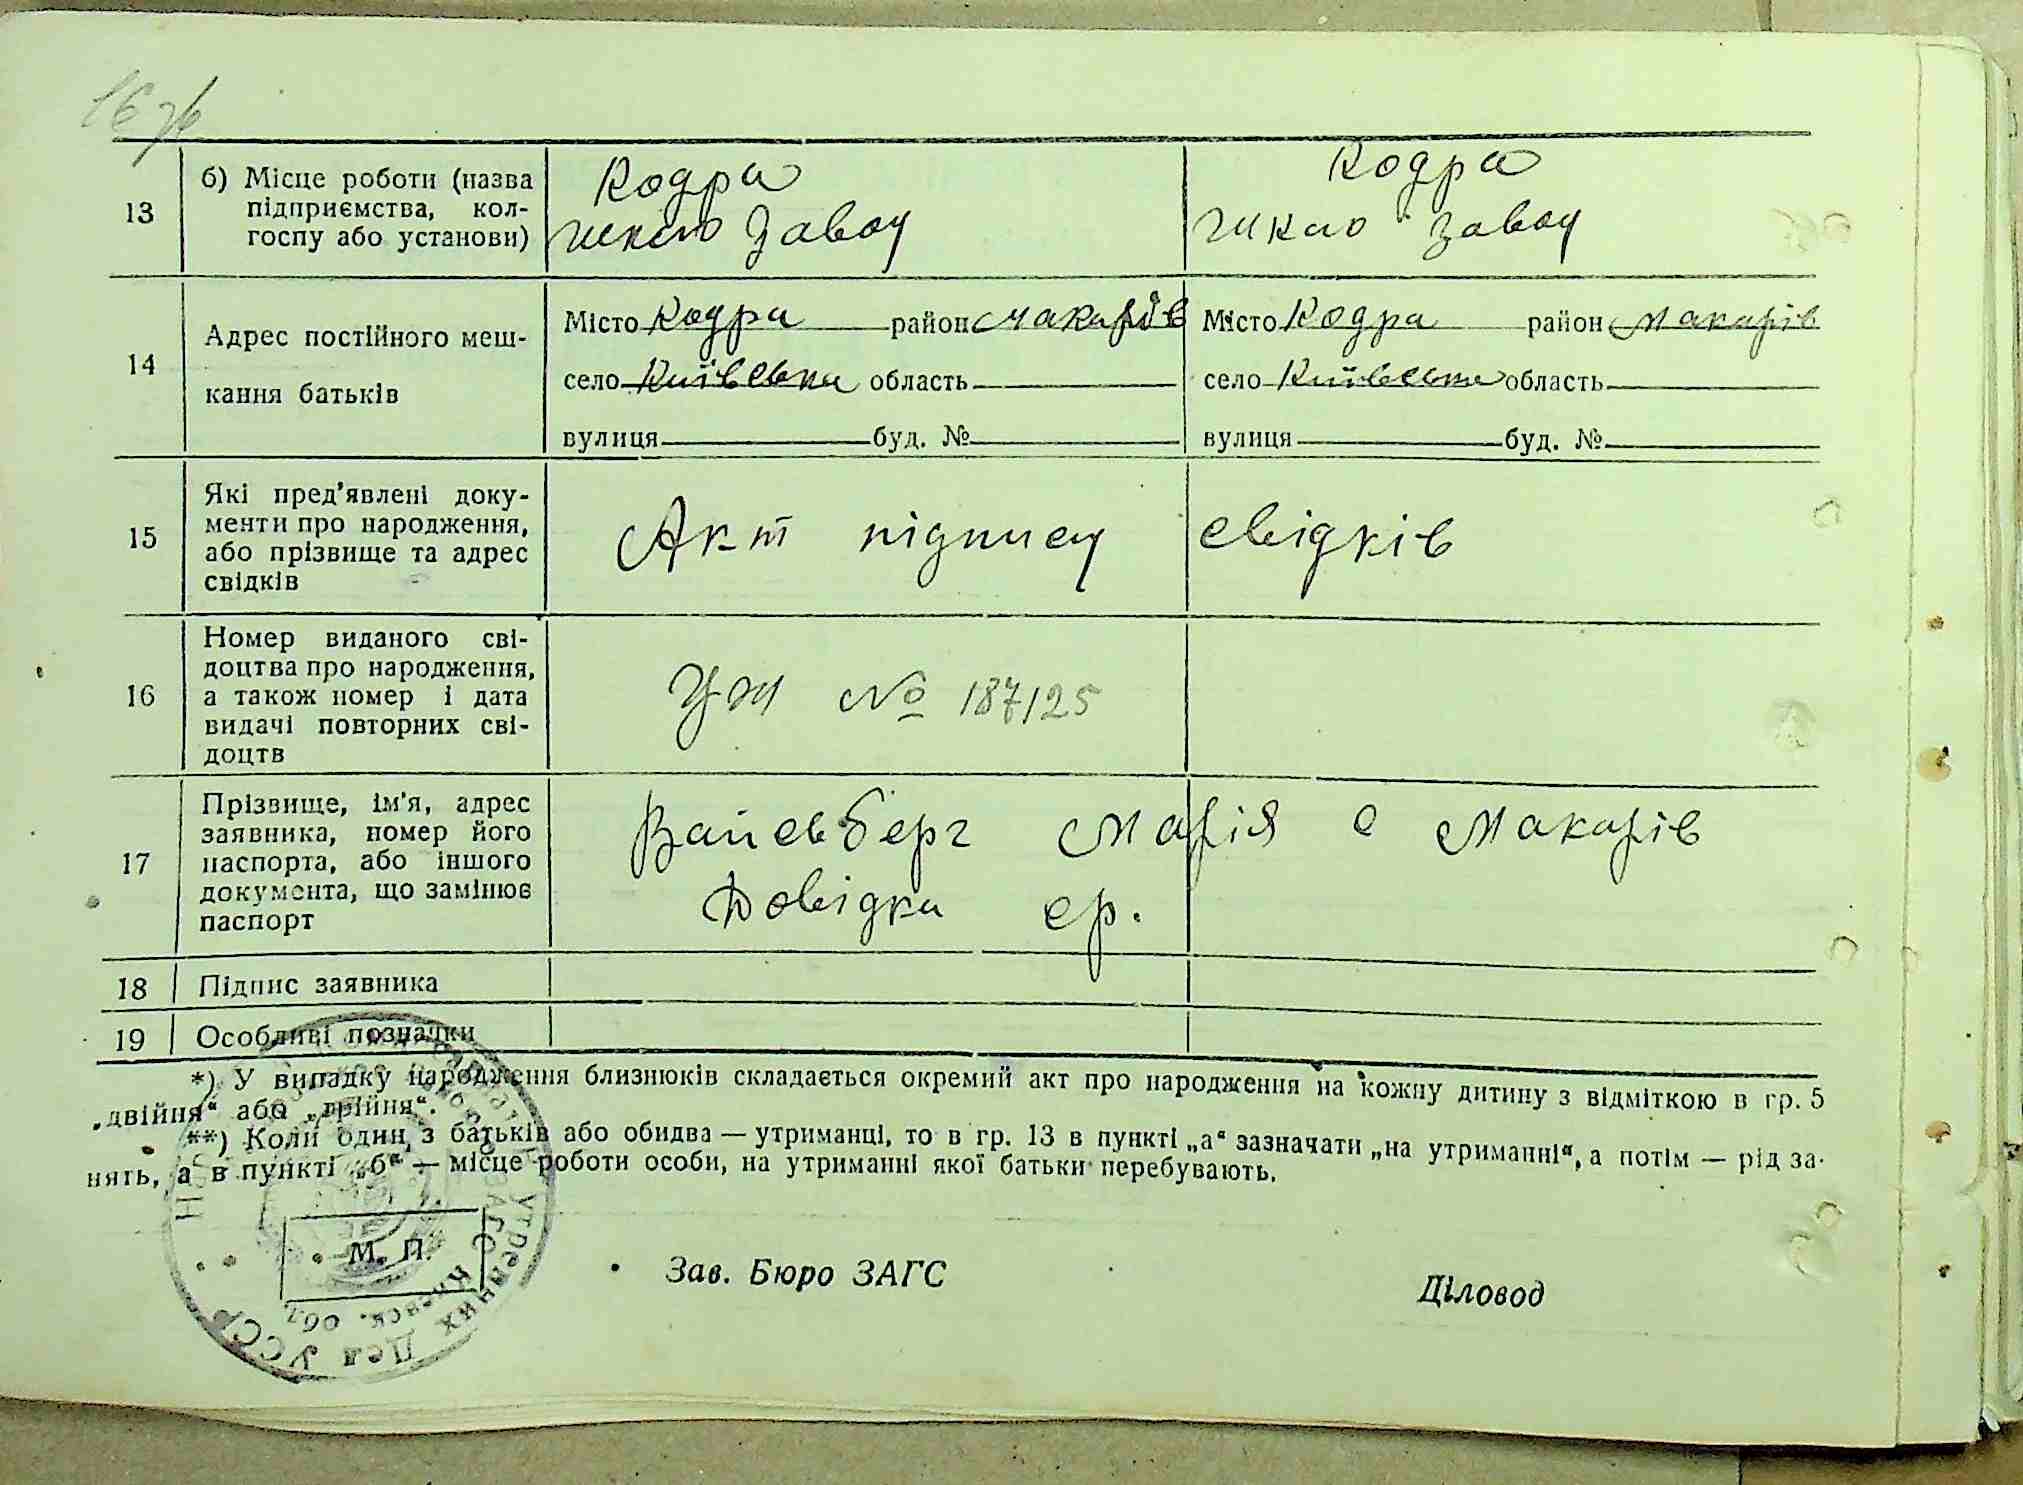 13
б) Місце роботи (назва
підприємства, кол-
госпу або установи)
Кодра
шкло завод
Кодра
шкло завод
14
Адрес постійного меш-
кання батьків
Місто Кодра район Макарів
село Київська область
вулиця буд. №
Місто Кодра район Макарів
село Київська область
вулиця буд. №
15
Які пред'явлені доку-
менти про народження,
або прізвище та адрес
свідків
Акт підпису свідків
16
Номер виданого сві-
доцтва про народження,
а також номер і дата
видачі повторних сві-
доцтв
№ 187125
17
Прізвище, ім'я, адрес
заявника, номер його
паспорта, або іншого
документа, що замінює
паспорт
Вайсьберг Марія с Макарів
Довідка ср.
18
Підпис заявника
19
Особливі позначки
*) У випадку народження близнюків складається окремий акт про народження на кожну дитину з відміткою в гр. 5
„двійня“ або „трійня“.
**) Коли один з батьків або обидва — утриманці, то в гр. 13 в пункті „а“ зазначати „на утриманні“, а потім — рід за-
нять, а в пункті „б“ — місце роботи особи, на утриманні якої батьки перебувають.
М. П.
Зав. Бюро ЗАГС
Діловод
Дел УССР
ЗАГС Киевск. обл.